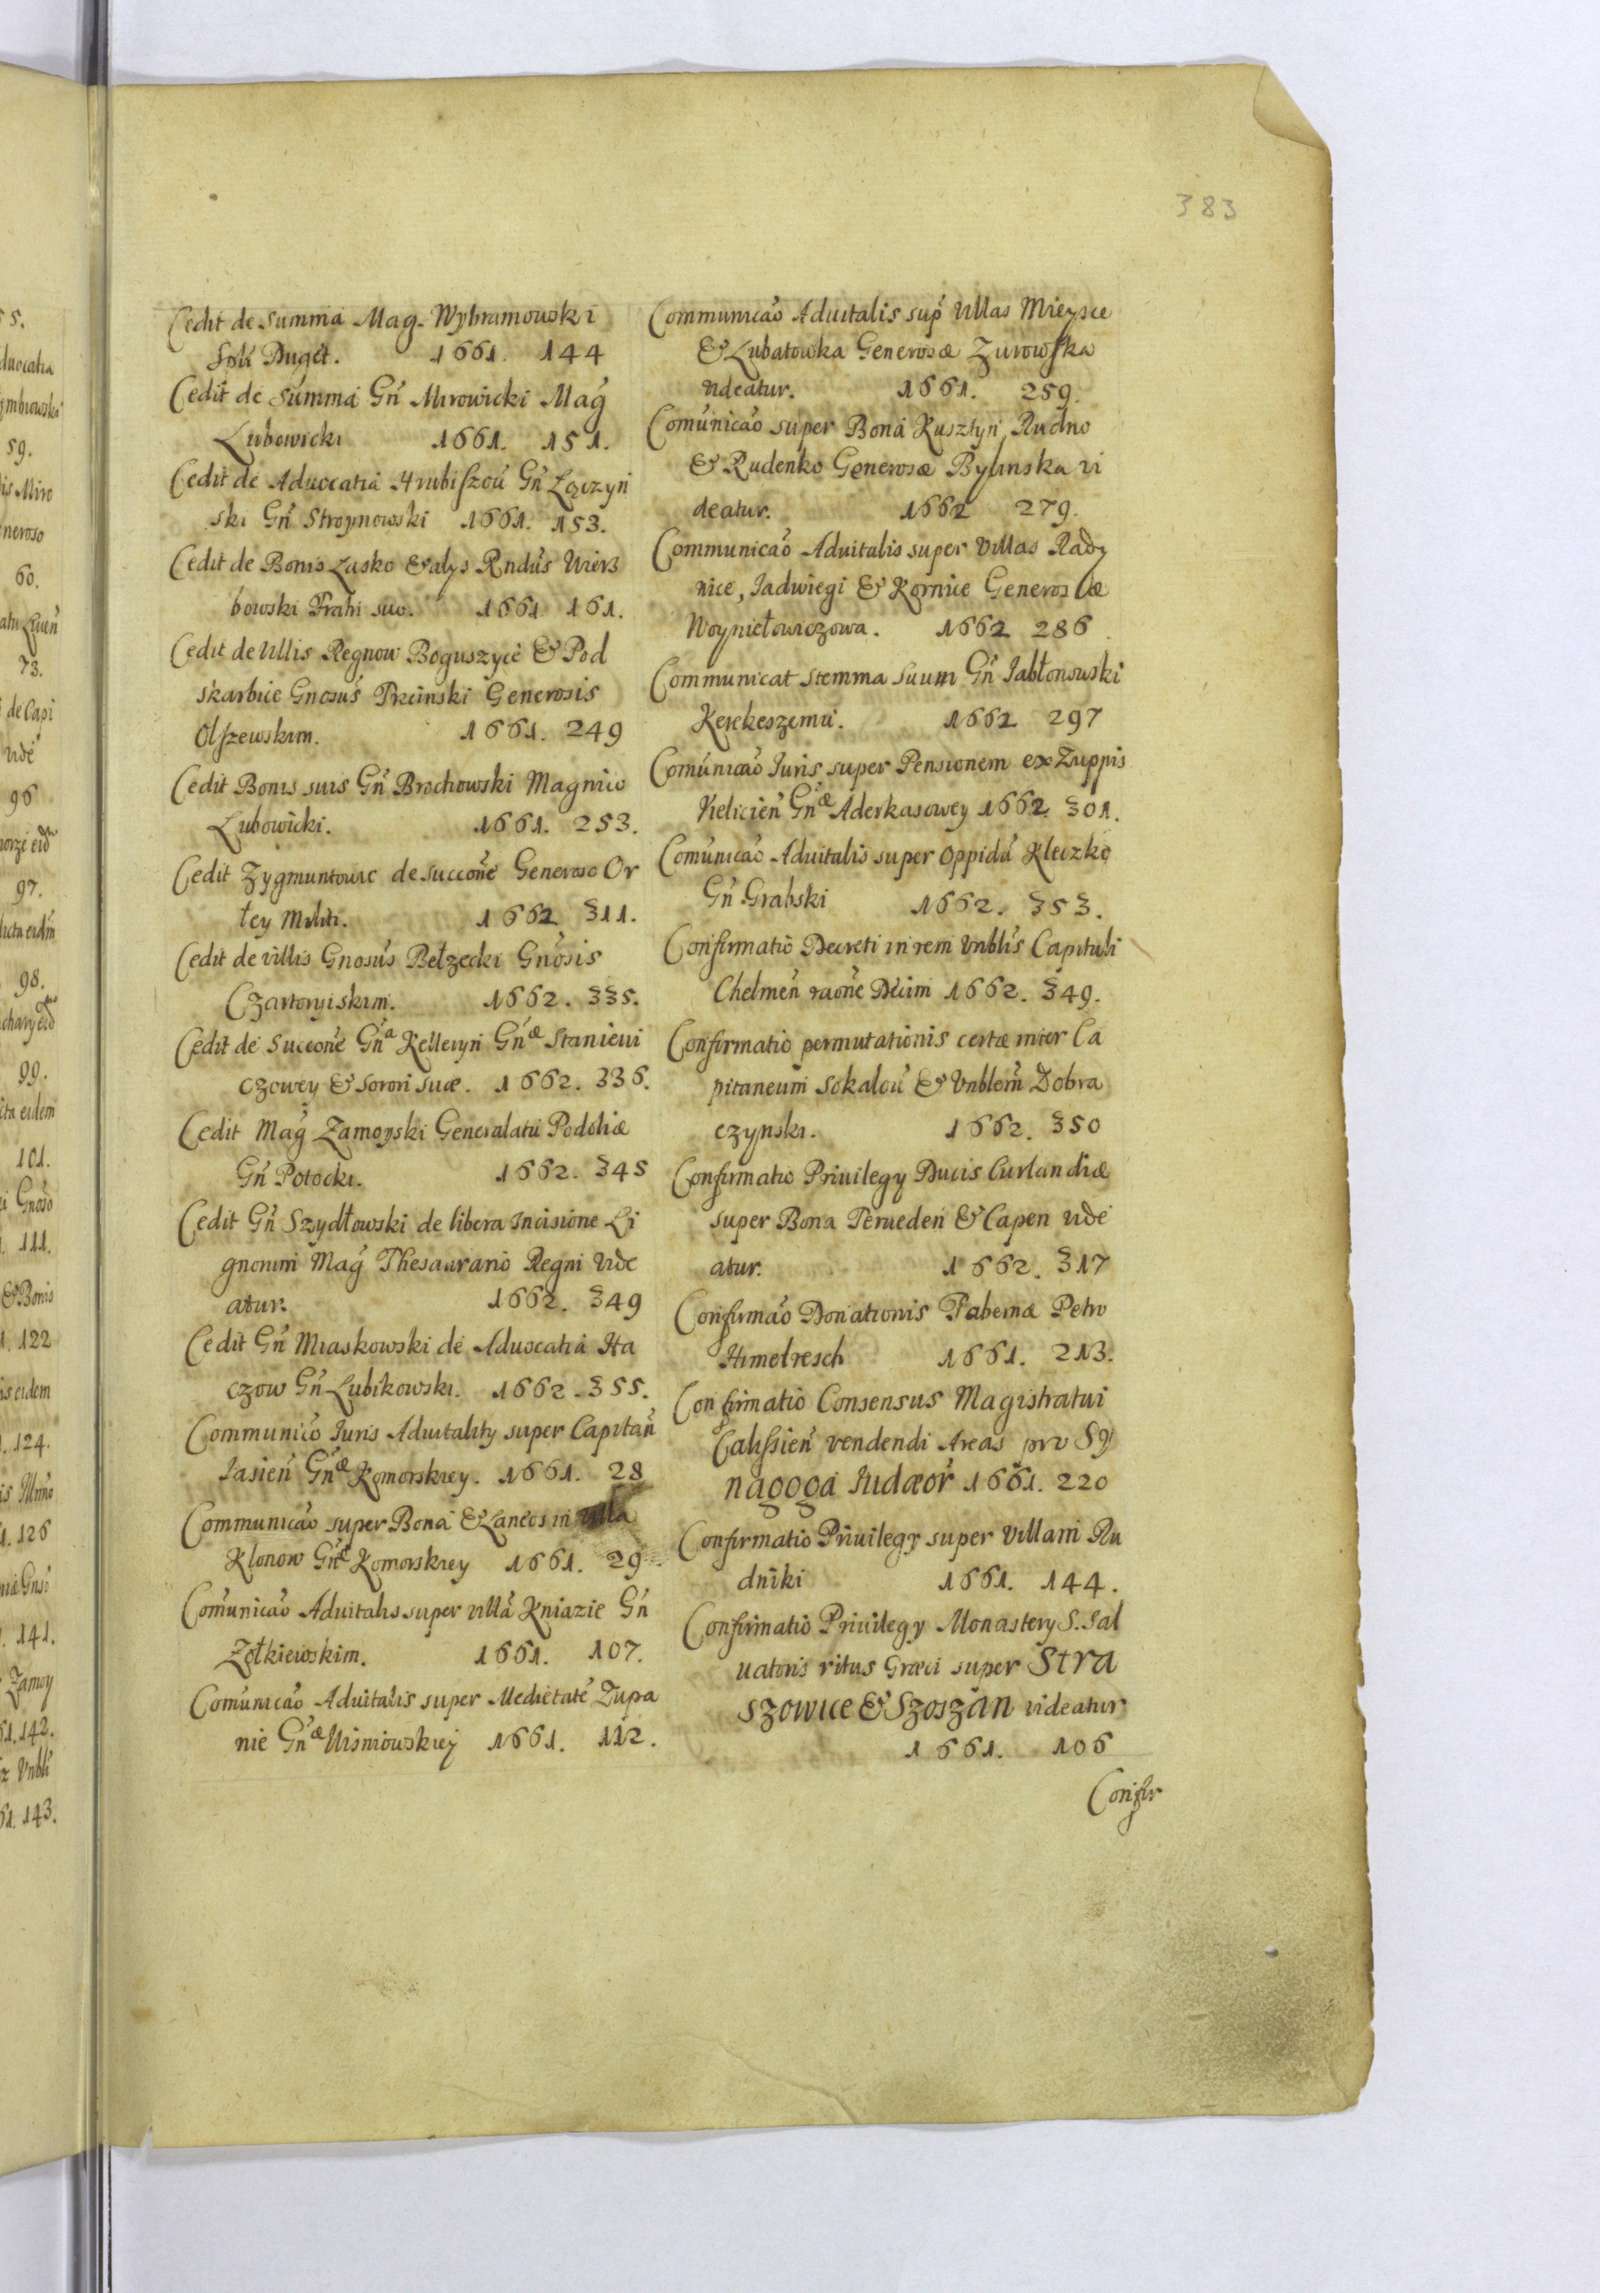 383
Cedit de Summa Mag. Wybramowski
Duget. 1661. 144
Cedit de Summa Gń Mirowicki Mag
Lubowicki 1661. 151.
Cedit de Aduocatia Hrubiszou Gń Łączyń
ski Gń Stroynowski 1661. 153.
Cedit de Bonis Lasko & alys Rndus Wierz
bowski Fratri suo. 1661 161.
Cedit de Villis Regnow Boguszyce & Pod
skarbice Gnosus Trcinski Generosis
Olszewskim. 1661. 249
Cedit Bonis suis Gń Brochowski Magnico
Lubowicki. 1661. 253.
Cedit Zygmuntowic de succone Generoso Or
łey Militi. 1662 311.
Cedit de villis Gnosus Bełzecki Gnosis
Czartoryiskim. 1662. 335.
Cedit de Succone Gńa Kelleryn Gńæ Staniewi
czowey & Sorori suæ. 1662. 336.
Cedit Mag Zamoyski Generalatu Podoliæ
Gń Potocki. 1662. 345
Cedit Gń Szydłowski de libera Incisione Li
gnorum Mag Thesaurario Regni Vide
atur. 1662. 349
Cedit Gń Miaskowski de Aduocatia Ha
czow Gń Lubikowski. 1662. 355.
Communico Iuris Aduitality super Capitań
Iasień Gńæ Komorskiey. 1661. 28
Communicao super Bona & Laneos in villa
Klonow Gńæ Komorskiey 1661. 29
Comunicao Aduitalis super villa Kniazie Gń
Zołkiewskim. 1661. 107.
Comunicao Aduitalis super Medietate Zupa
nie Gńæ Wisniowskiey 1661. 112.
Communicao Aduitalis sup Villas Mieysce
& Lubatowka Generosæ Zurowska
videatur. 1661. 259.
Comunicao super Bona Kusztyn, Rudno
& Rudenko Generosæ Bylinska vi
deatur. 1662 279.
Communicao Aduitalis super Villas Rady
nice, Jadwiegi & Kornice Generosæ
Woyniełowiczowa. 1662 286.
Communicat stemma suum Gń Jabłonowski
Kerekeszemu. 1662 297
Comunicao Iuris super Pensionem ex Zuppis
Vielicień Gńæ Aderkasowey 1662 301.
Comunicao Aduitalis super Oppidu Kleczko
Gń Grabski 1662. 353.
Confirmatio Decreti in rem Vnblis Capituli
Chelmeń raone Decim 1662. 349.
Confirmatio permutationis certæ inter Ca
pitaneum Sokalou & Vnblem Dobra
czynski. 1662. 350
Confirmatio Priuilegy Ducis Curlandiæ
super Bona Perueden & Capen vide
atur. 1662. 317
Confirmao Donationis Tabernæ Petro
Himelresch 1661. 213.
Confirmatio Consensus Magistratui
Calissień vendendi Areas pro Sy
nagoga Iudæor 1661. 220
Confirmatio Priuilegy super Villam Ru
dniki 1661. 144.
Confirmatio Priuilegy Monastery S. Sal
uatoris ritus Græci super Stra
szowice & Szoszan videatur
1661. 106
Confir